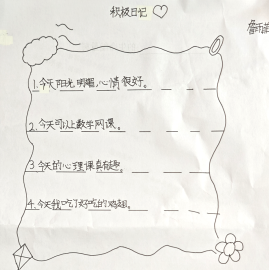 积极日记
1.今天阳光明媚,心情很好。
2.今天可以上数学网课。
3.今天的心理课真有趣。
4.今天我吃了好吃的鸡翅。